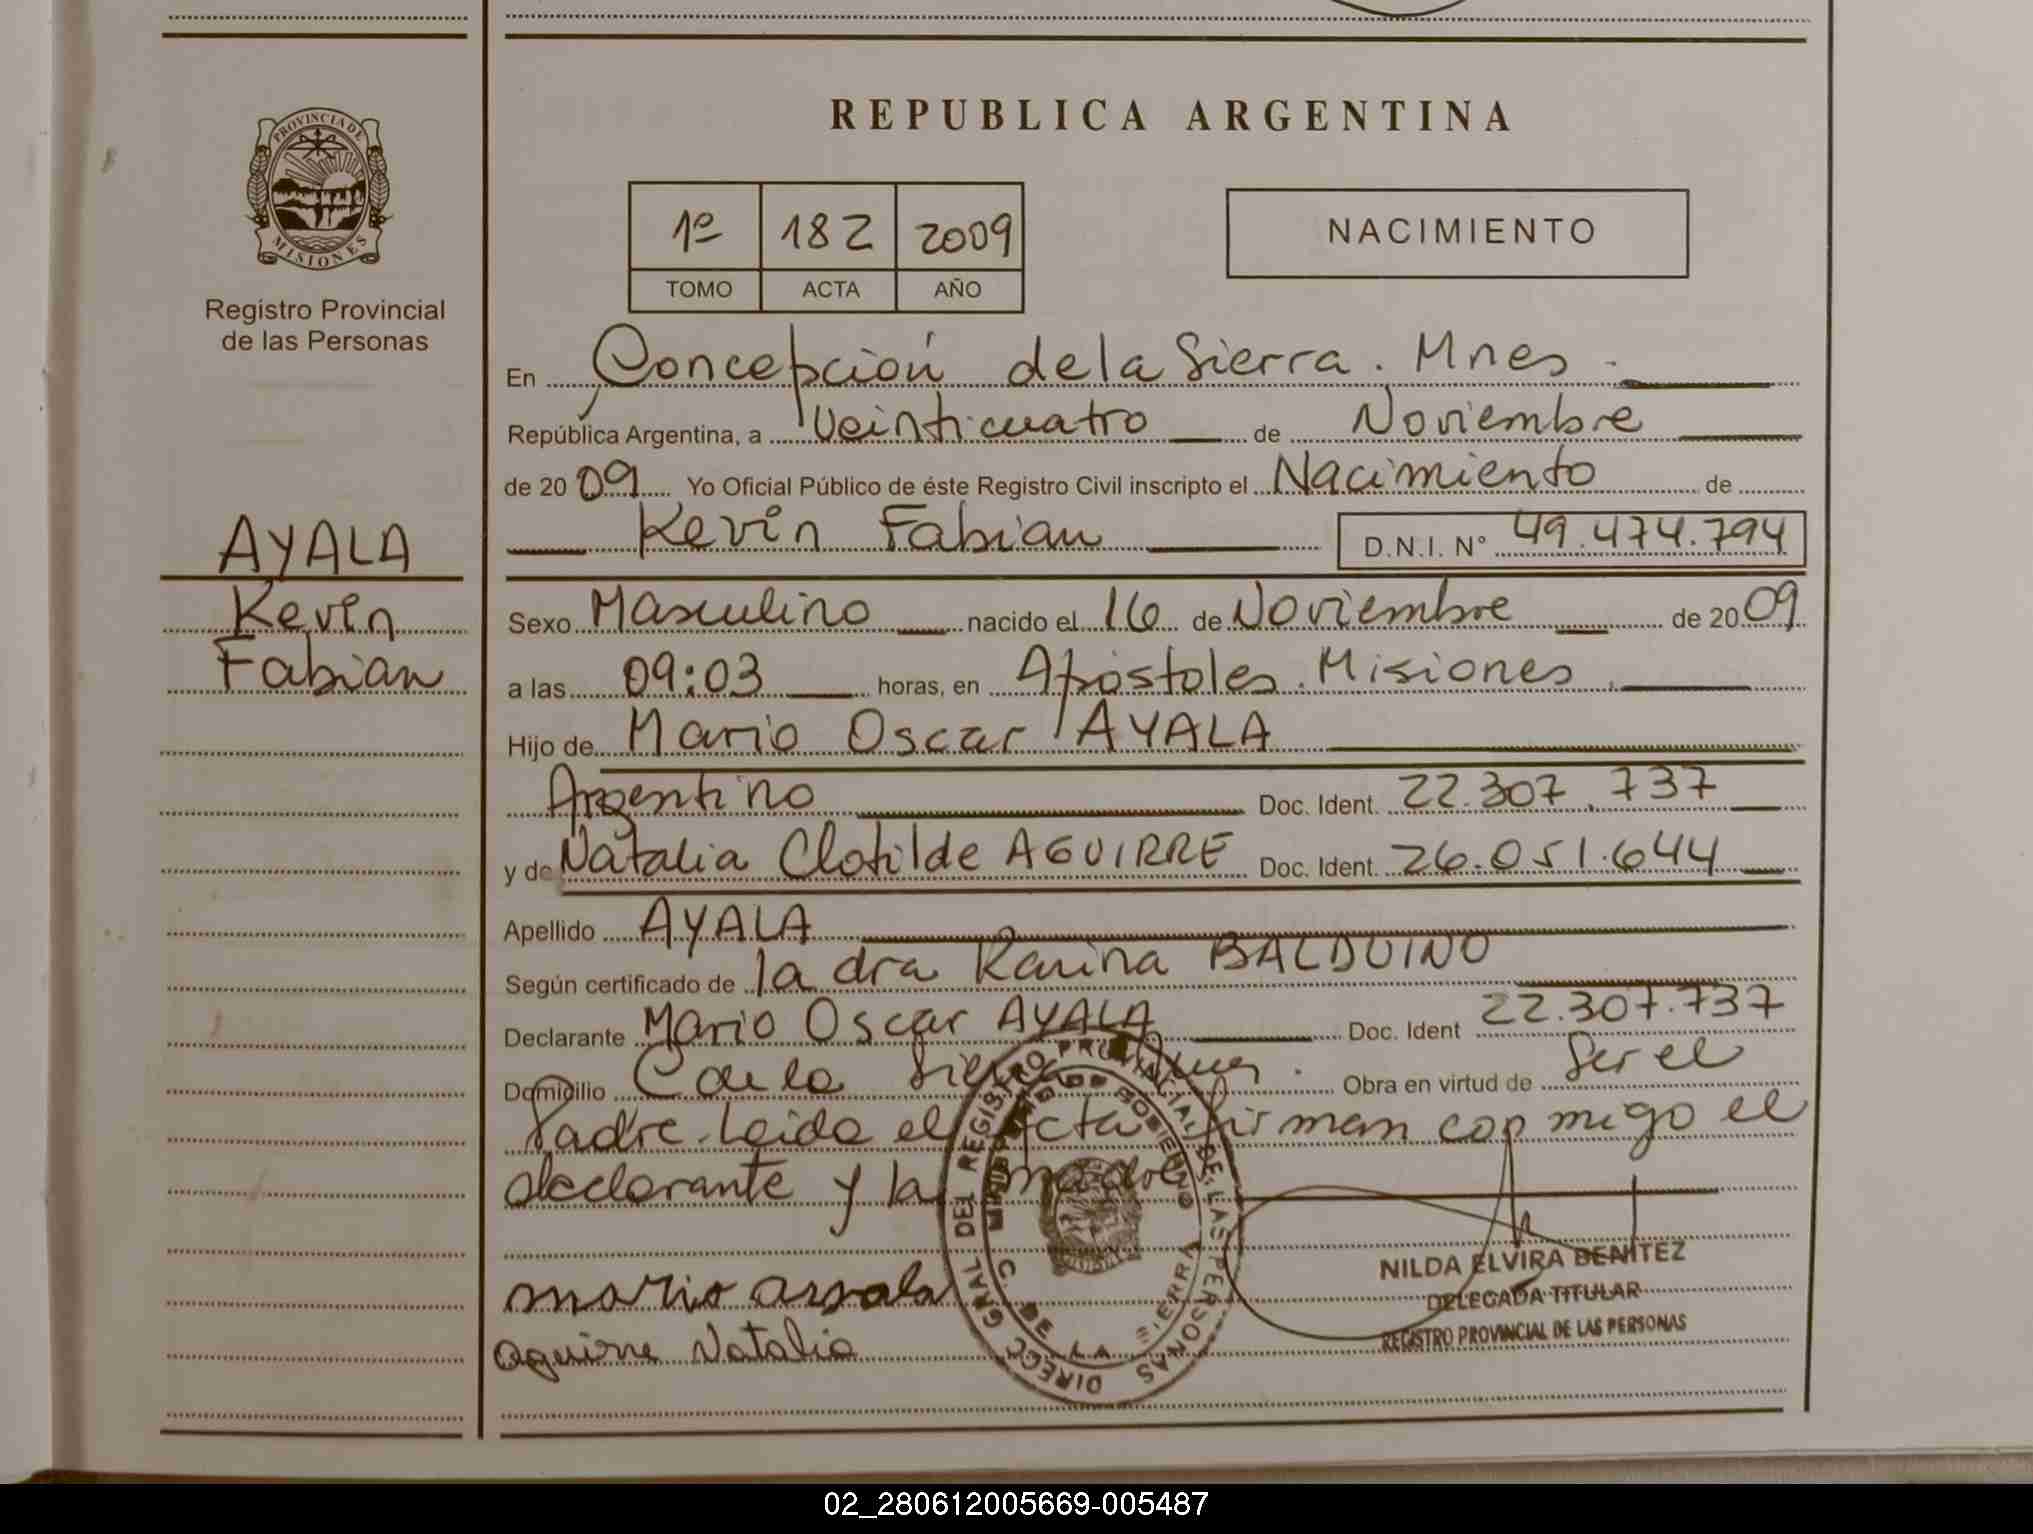 PROVINCIA DE
MISIONES
Registro Provincial
de las Personas
AYALA
Kevin
Fabian
REPUBLICA ARGENTINA
1º 182 2009
TOMO ACTA AÑO
NACIMIENTO
En Concepción de la Sierra. Mnes.
República Argentina, a Veinticuatro de Noviembre
de 2009 Yo Oficial Público de éste Registro Civil inscripto el Nacimiento de
Kevin Fabian D.N.I. N° 49.474.794
Sexo Masculino nacido el 16 de Noviembre de 2009
a las 09:03 horas, en Apóstoles. Misiones.
Hijo de Mario Oscar AYALA
Argentino Doc. Ident. 22.307.737
y de Natalia Clotilde AGUIRRE Doc. Ident. 26.051.644
Apellido AYALA
Según certificado de la dra Karina BALDUINO
Declarante Mario Oscar AYALA Doc. Ident 22.307.737
Domicilio C de la Sierra Mnes. Obra en virtud de Ser el
Padre. Leida el Acta firman conmigo el
declarante y la madre
mario ayala
aguirre Natalia
DIRECC. GRAL. DEL REGISTRO PROVINCIAL DE LAS PERSONAS
MINISTERIO DE GOBIERNO
C. DE LA SIERRA
NILDA ELVIRA BENITEZ
DELEGADA TITULAR
REGISTRO PROVINCIAL DE LAS PERSONAS
02_280612005669-005487